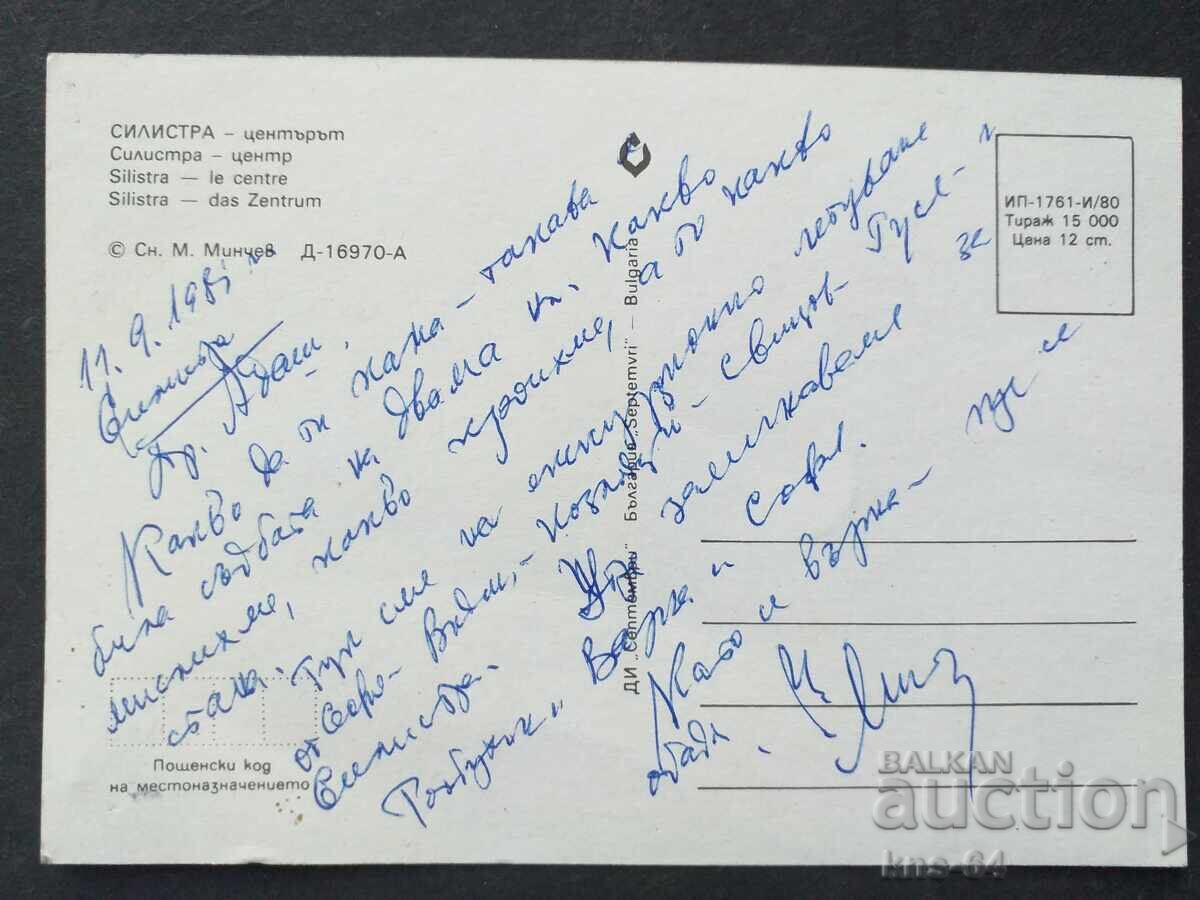 СИЛИСТРА – центърът
Силистра – центр
Silistra — le centre
Silistra — das Zentrum
© Сн. М. Минчев Д-16970-А
ИП-1761-И/80
Тираж 15 000
Цена 12 ст.
ДИ „Септември" България „Septemvri" – Bulgaria
11. 9. 1981
Силистра
Др.
Какво да ти кажа – такава е
била съдбата на двама ни. Какво
мислихме, какво кроихме, а то какво
стана. Тук сме на екскурзионно летуване
от Видин, – Козлодуй – Свищов – Русе –
Силистра. за
Варна и
Като се върна –
обадя.
Пощенски код
на местоназначението
BALKAN
auction
kns-64